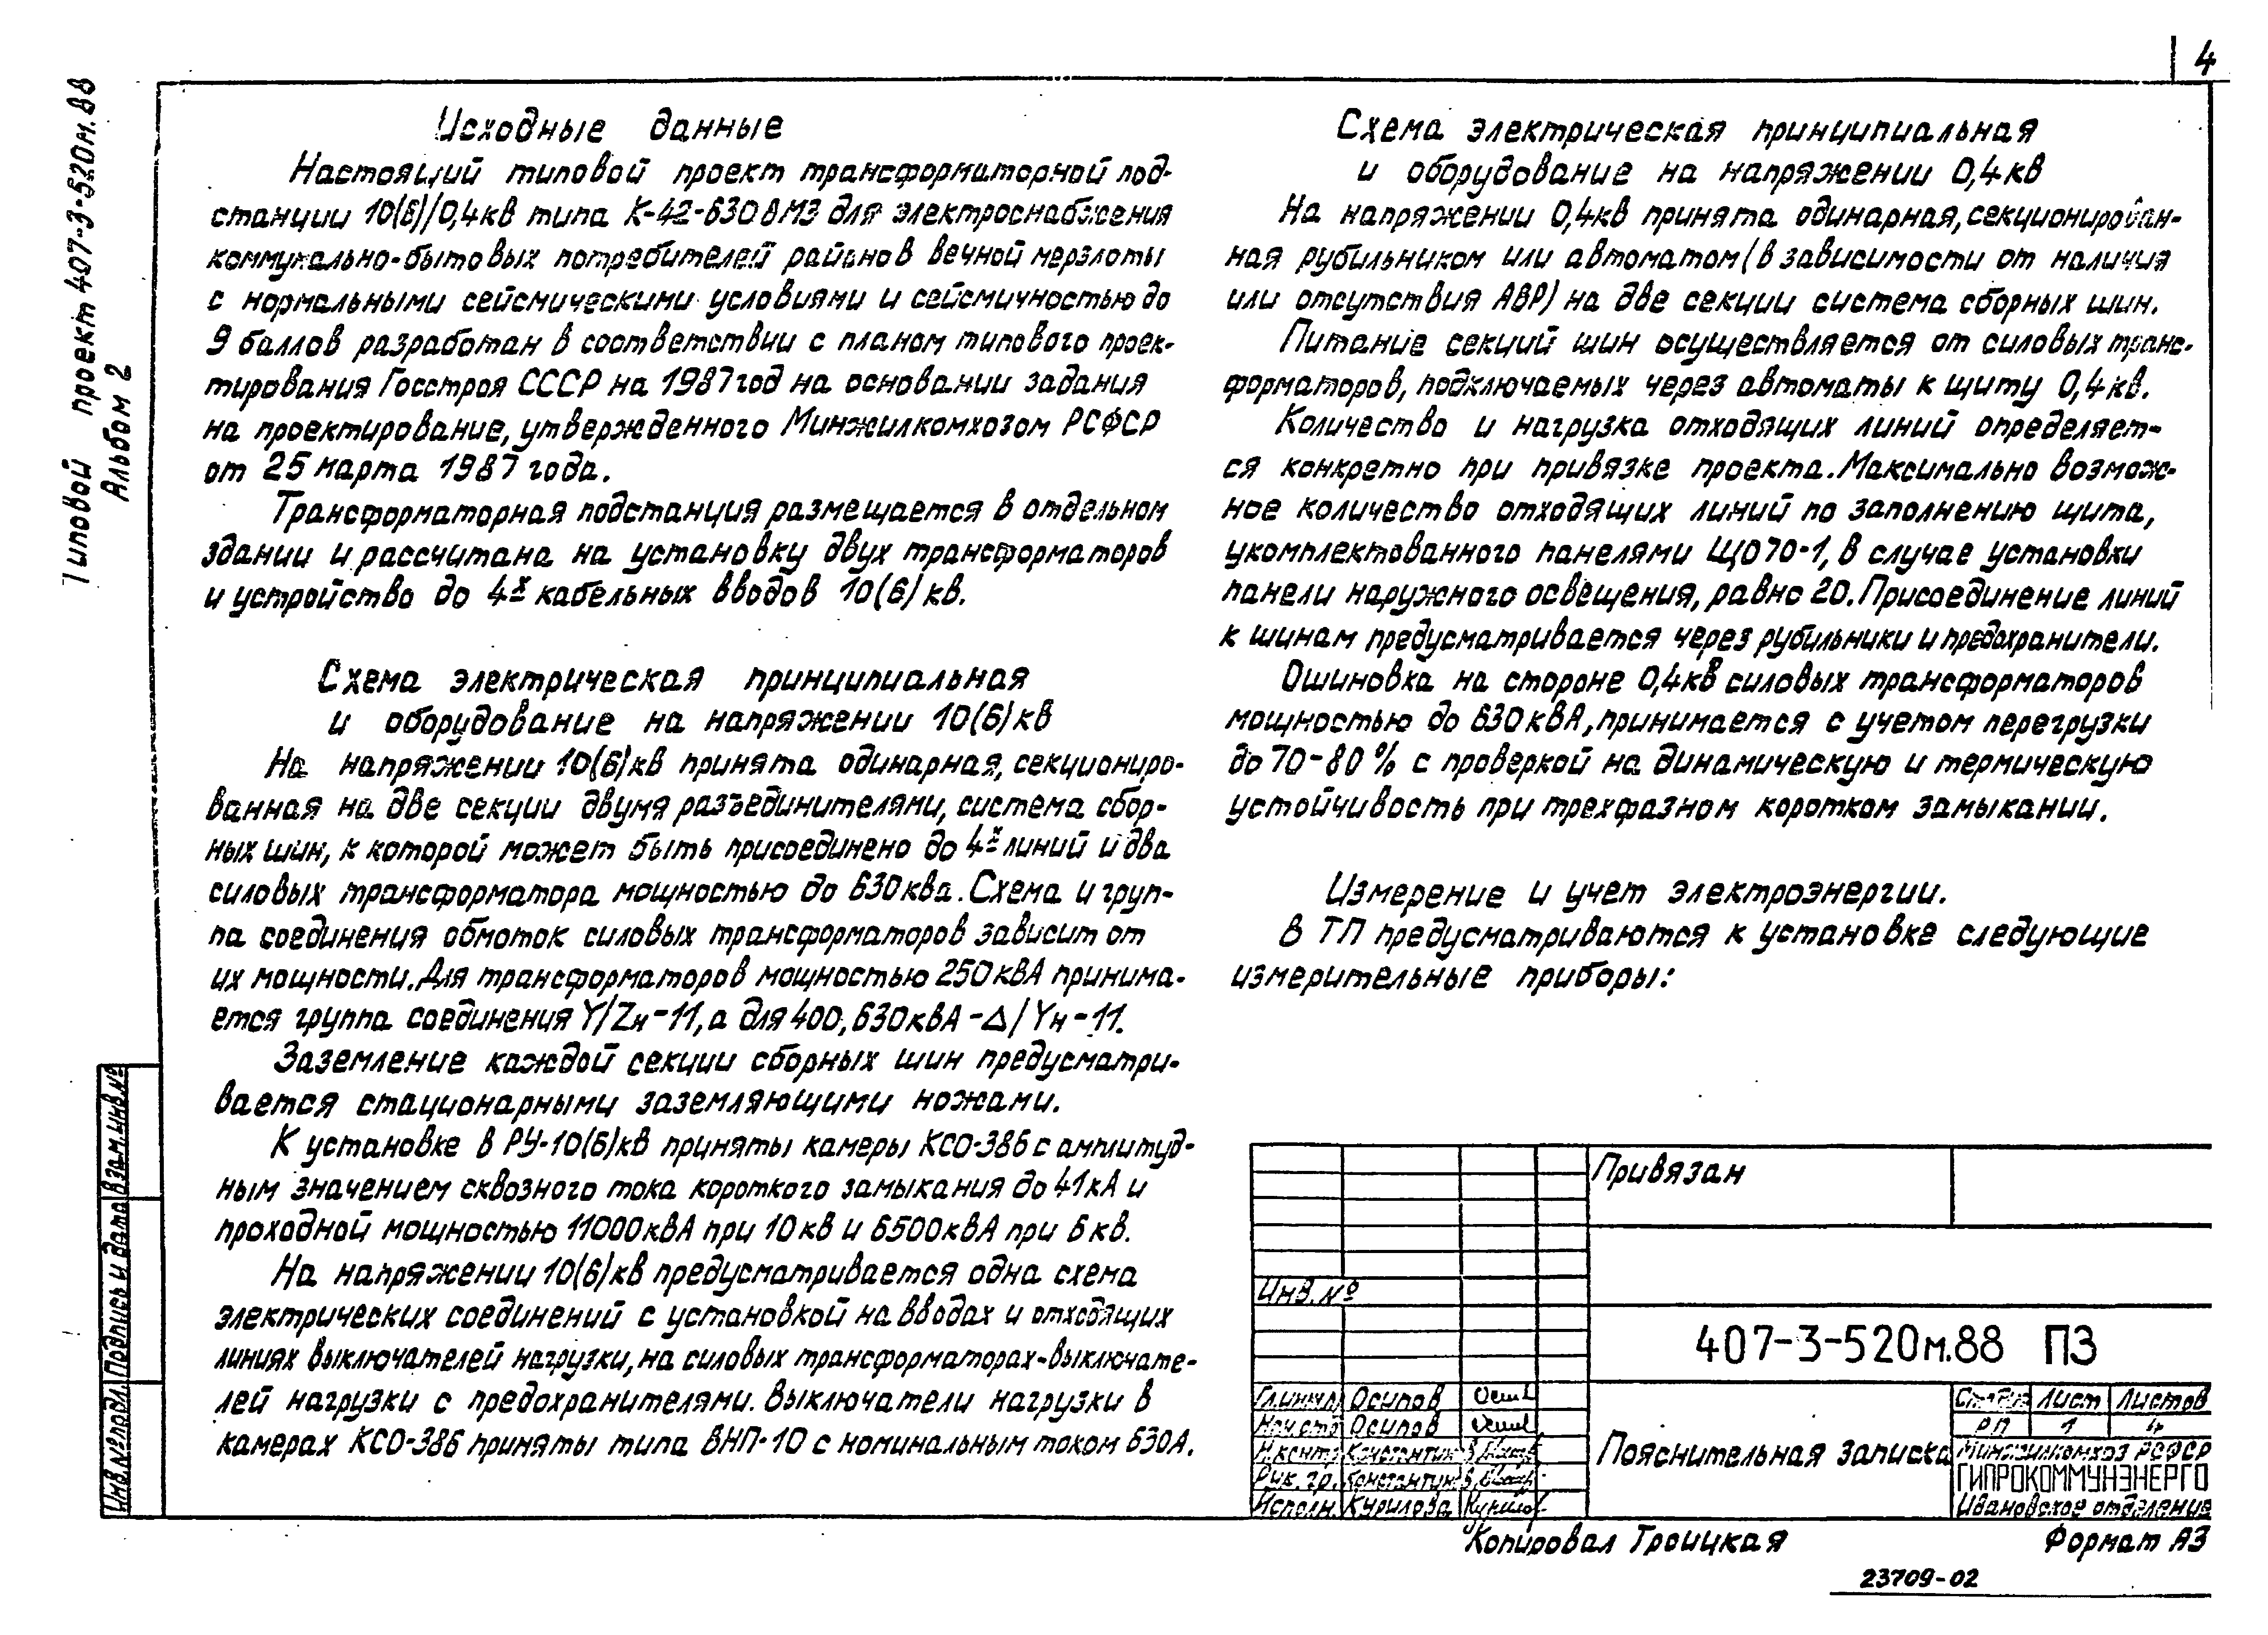 4
Типовой проект 407-3-520м.88
Альбом 2
Исходные данные
Настоящий типовой проект трансформаторной под-
станции 10(6)/0,4кв типа К-42-630ВМЗ для электроснабжения
коммунально-бытовых потребителей районов вечной мерзлоты
с нормальными сейсмическими условиями и сейсмичностью до
9 баллов разработан в соответствии с планом типового проек-
тирования Госстроя СССР на 1987 год на основании задания
на проектирование, утвержденного Минжилкомхозом РСФСР
от 25 марта 1987 года.
Трансформаторная подстанция размещается в отдельном
здании и рассчитана на установку двух трансформаторов
и устройство до 4х кабельных вводов 10(6) кв.
Схема электрическая принципиальная
и оборудование на напряжении 10(6) кв
На напряжении 10(6) кв принята одинарная, секциониро-
ванная на две секции двумя разъединителями, система сбор-
ных шин, к которой может быть присоединено до 4х линий и два
силовых трансформатора мощностью до 630 ква. Схема и груп-
па соединения обмоток силовых трансформаторов зависит от
их мощности. Для трансформаторов мощностью 250 кВА принима-
ется группа соединения Y/Zн-11, а для 400, 630 кВА -Δ/Yн-11.
Заземление каждой секции сборных шин предусматри-
вается стационарными заземляющими ножами.
К установке в РУ-10(6)кв приняты камеры КСО-386 с амплитуд-
ным значением сквозного тока короткого замыкания до 41кА и
проходной мощностью 11000 кВА при 10 кв и 6500 кВА при 6 кв.
На напряжении 10(6)кв предусматривается одна схема
электрических соединений с установкой на вводах и отходящих
линиях выключателей нагрузки, на силовых трансформаторах-выключате-
лей нагрузки с предохранителями. Выключатели нагрузки в
камерах КСО-386 приняты типа ВНП-10 с номинальным током 630А.
Схема электрическая принципиальная
и оборудование на напряжении 0,4 кв
На напряжении 0,4кв принята одинарная, секционирован-
ная рубильником или автоматом (в зависимости от наличия
или отсутствия АВР) на две секции система сборных шин.
Питание секций шин осуществляется от силовых транс-
форматоров, подключаемых через автоматы к щиту 0,4 кв.
Количество и нагрузка отходящих линий определяет-
ся конкретно при привязке проекта. Максимально возмож-
ное количество отходящих линий по заполнению щита,
укомплектованного панелями ЩО70-1, в случае установки
панели наружного освещения, равно 20. Присоединение линий
к шинам предусматривается через рубильники и предохранители.
Ошиновка на стороне 0,4кв силовых трансформаторов
мощностью до 630 кВА, принимается с учетом перегрузки
до 70-80 % с проверкой на динамическую и термическую
устойчивость при трехфазном коротком замыкании.
Измерение и учет электроэнергии.
В ТП предусматриваются к установке следующие
измерительные приборы:
Взам.инв.№
Подпись и дата
Инв.№ подл.
Привязан
Инв.№
407-3-520м.88 ПЗ
Осипов
Осипов
Рук. гр.
Исполн. Курилова
Пояснительная записка
Стадия Лист Листов
РП 1 4
Минжилкомхоз РСФСР
ГИПРОКОММУНЭНЕРГО
Ивановское отделение
Копировал Троицкая
Формат А3
23709-02